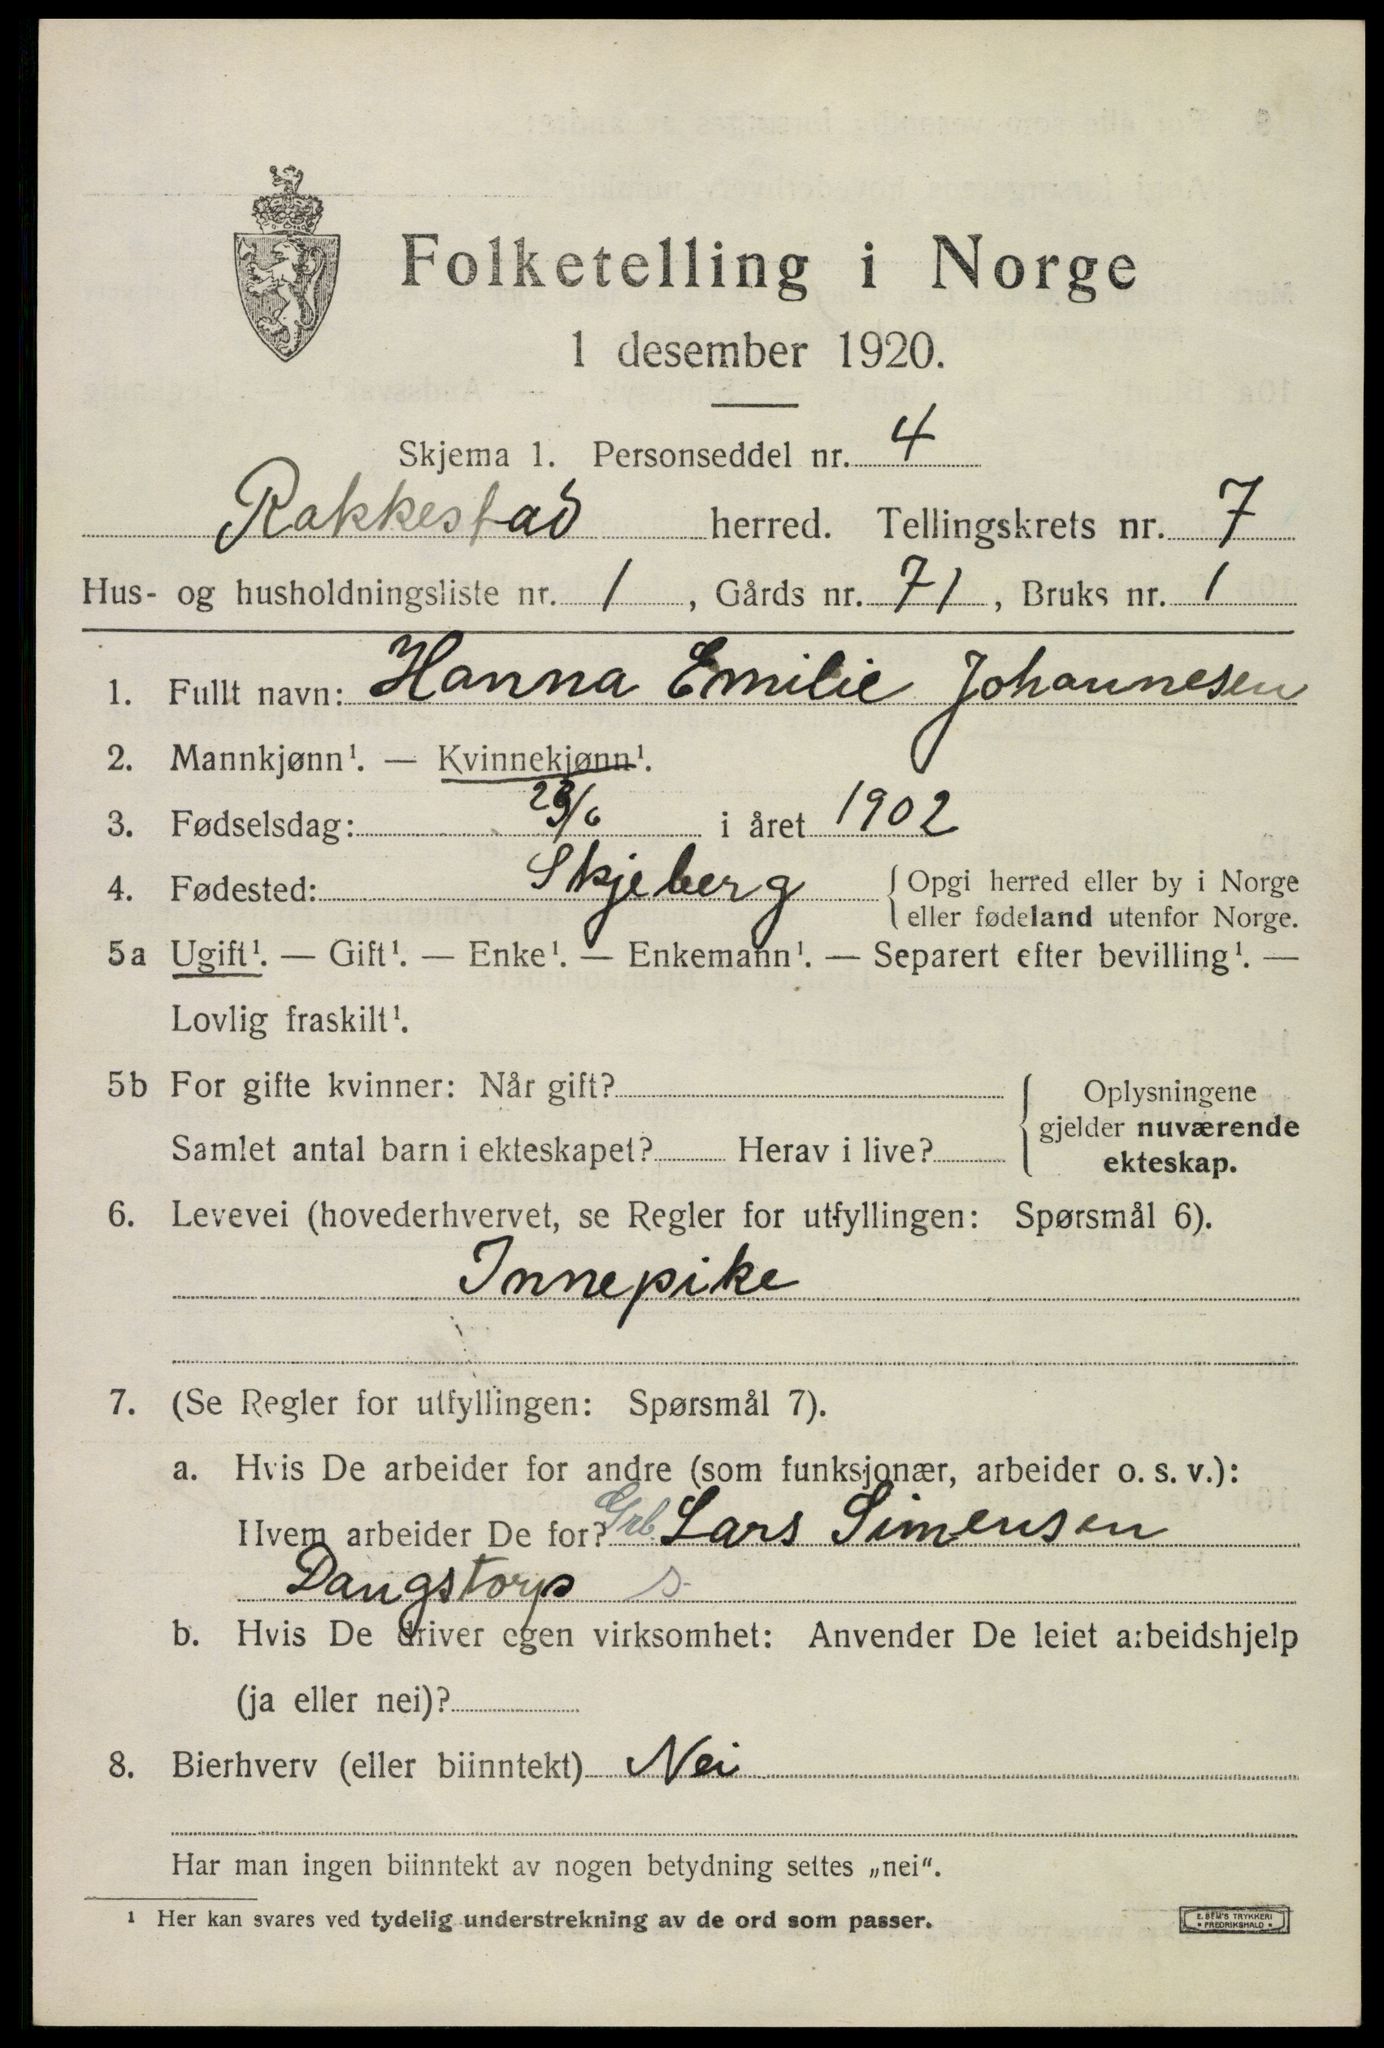 Folketelling i Norge
1 desember 1920.
Skjema 1. Personseddel nr. 4
Rakkestad herred. Tellingskrets nr. 7
Hus- og husholdningsliste nr. 1, Gårds nr. 71, Bruks nr. 1
1. Fullt navn: Hanna Emilie Johannesen
2. Mannkjønn¹. — Kvinnekjønn¹.
3. Fødselsdag: /6 i året 1902
4. Fødested: Skjeberg { Opgi herred eller by i Norge
eller fødeland utenfor Norge.
5a Ugift¹. — Gift¹. — Enke¹. — Enkemann¹. — Separert efter bevilling¹. —
Lovlig fraskilt¹.
5b For gifte kvinner: Når gift? { Oplysningene
gjelder nuværende
Samlet antal barn i ekteskapet? Herav i live? ekteskap.
6. Levevei (hovederhvervet, se Regler for utfyllingen: Spørsmål 6).
Innepike
7. (Se Regler for utfyllingen: Spørsmål 7).
a. Hvis De arbeider for andre (som funksjonær, arbeider o. s. v.):
Hvem arbeider De for? Grb. Lars Simensen
Dangstorp s
b. Hvis De driver egen virksomhet: Anvender De leiet arbeidshjelp
(ja eller nei)?
8. Bierhverv (eller biinntekt) Nei
Har man ingen biinntekt av nogen betydning settes „nei“.
¹ Her kan svares ved tydelig understrekning av de ord som passer.
E. SEM'S TRYKKERI
• FREDRIKSHALD •